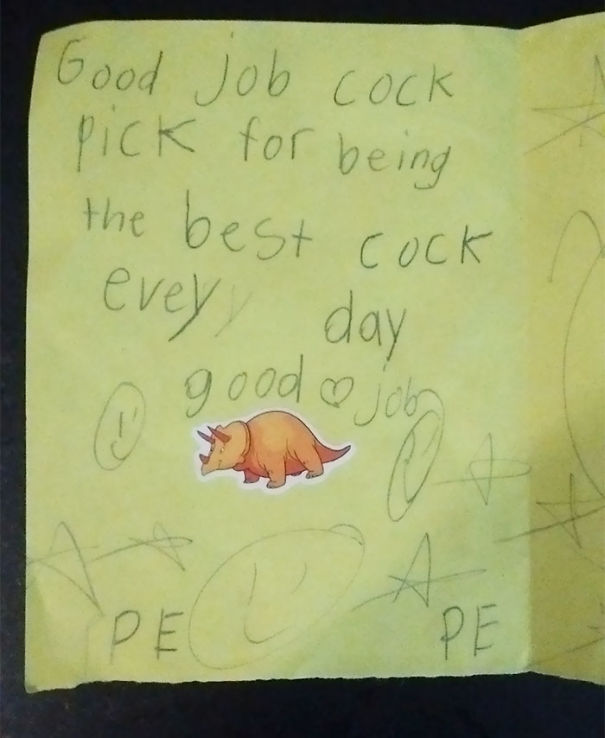 Good job cock
pick for being
the best cock
evey day
good job
PE PE